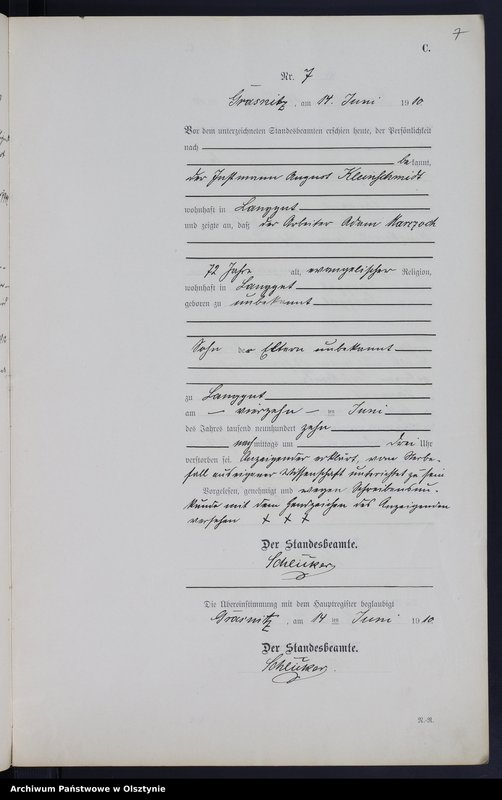 7
C.
Nr. 7
Grasnitz, am 14. Juni 1910
Vor dem unterzeichneten Standesbeamten erschien heute, der Persönlichkeit
nach
bekannt,
der Instmann August Kleinschmidt
wohnhaft in Langgut
und zeigte an, daß der Arbeiter Adam Marczoch
72 Jahre alt, evangelischer Religion,
wohnhaft in Langgut
geboren zu unbekannt
Sohn der Eltern unbekannt
zu Langgut
am vierzehnten Juni
des Jahres tausend neunhundert zehn
nachmittags um drei Uhr
verstorben sei. Anzeigender erklärt, vom Sterbe-
fall aus eigener Wissenschaft unterrichtet zu sein
Vorgelesen, genehmigt und wegen Schreibensun-
kunde mit dem Handzeichen des Anzeigenden
versehen + + +
Der Standesbeamte.
Die Übereinstimmung mit dem Hauptregister beglaubigt
Grasnitz, am 14ten Juni 1910
Der Standesbeamte.
Archiwum Państwowe w Olsztynie